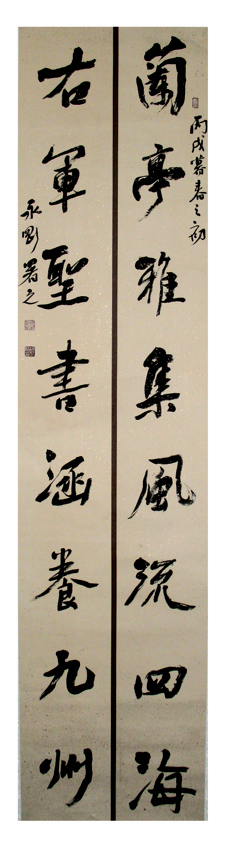 蘭亭雅集風流四海
丙戌暮春之初
右軍聖書涵養九州
永剛署之